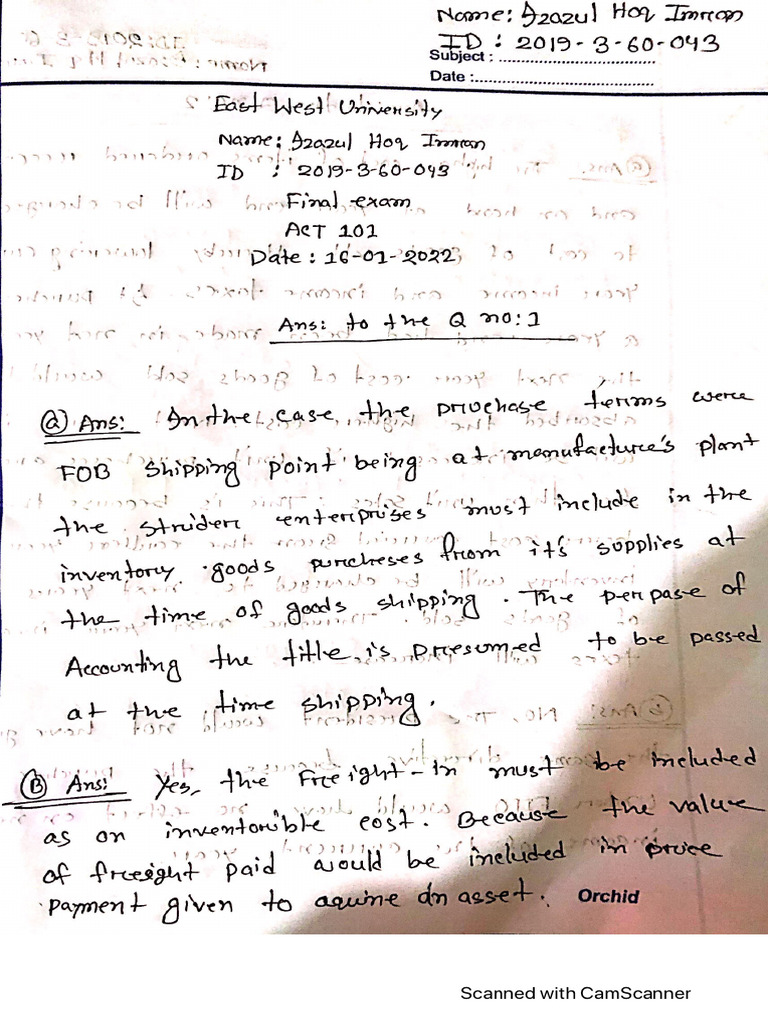 Name: Azazul Hoq Imran
ID : 2019-3-60-043
Subject : ..............................
Date :..................................
East West University
Name: Azazul Hoq Imran
ID : 2019-3-60-043
Final exam
ACT 101
Date : 16-01-2022
Ans: to the Q no:1
(a) Ans: In the case, the pruchase terms were
FOB shipping point being at manufacture's plant
the strider enterprises must include in the
inventory goods purcheses from it's supplies at
the time of goods shipping. The perpase of
Accounting the title is presumed to be passed
at the time shipping.
(B) Ans: Yes, the Freight-in must be included
as on inventorible cost. Because the value
of freight paid would be included in price
payment given to aquire an asset. Orchid
Scanned with CamScanner